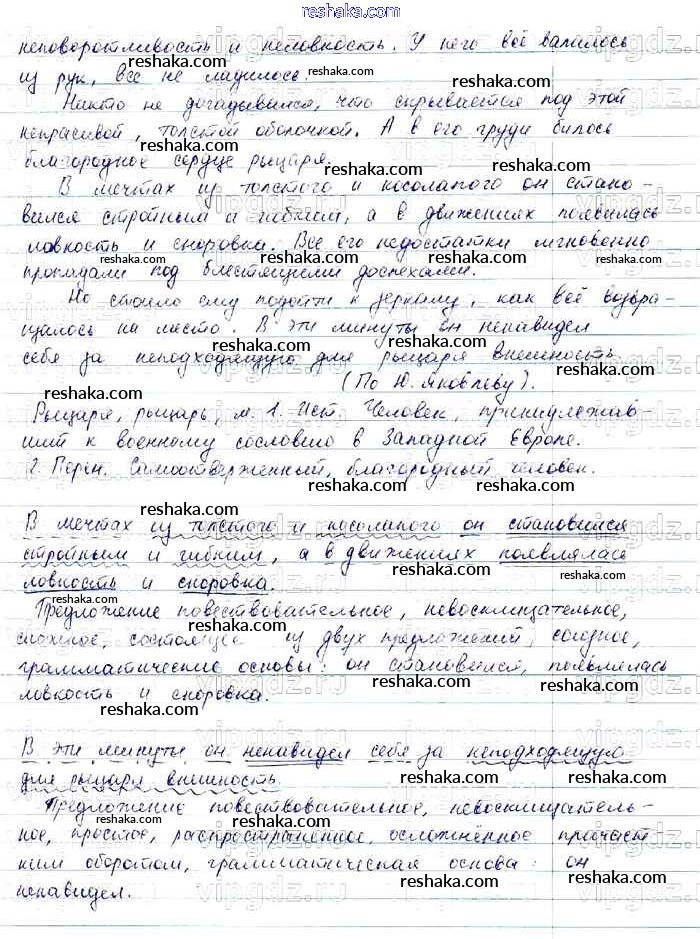 reshaka.com
неповоротливость и неловкость. У него всё валилось
из рук, все не ладилось.
reshaka.com
Никто не догадывался, что скрывается под этой
reshaka.com
некрасивой, толстой оболочкой. А в его груди билось
благородное сердце рыцаря.
reshaka.com
В мечтах из толстого и косолапого он стано-
вился стройным и гибким, а в движениях появилась
ловкость и сноровка. Все его недостатки мгновенно
пропадали под блестящими доспехами.
Но стоило ему подойти к зеркалу, как всё возвра-
щалось на место. В эти минуты он ненавидел
себя за неподходящую для рыцаря внешность
reshaka.com
(По Ю. Яковлеву).
Рыцаря, рыцарь, м. 1. Ист. Человек, принадлежав-
ший к военному сословию в Западной Европе.
2. Перен. Самоотверженный, благородный человек.
reshaka.com
reshaka.com
В мечтах из толстого и косолапого он становился
стройным и гибким, а в движениях появлялась
ловкость и сноровка.
reshaka.com
Предложение повествовательное, невосклицательное,
сложное, состоящее из двух предложений, союзное,
reshaka.com
грамматические основы: он становился, появлялась
ловкость и сноровка.
reshaka.com
reshaka.com
В эти минуты он ненавидел себя за неподходящую
для рыцаря внешность.
reshaka.com
Предложение повествовательное, невосклицатель-
ное, простое, распространённое, осложнённое причаст
ным оборотом, грамматическая основа: он
ненавидел.
reshaka.com
reshaka.com